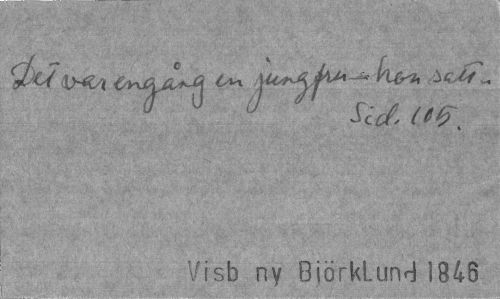 Det var engång en jungfru - hon satt..
Sid. 105.
Visb ny BjörkLund 1846